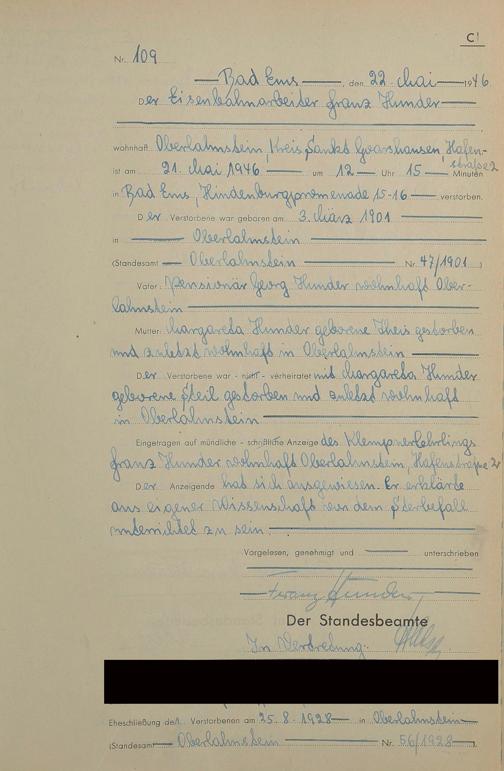 C!
Nr. 109
Bad Ems, den 22. Mai 1946
Der Eisenbahnarbeiter Franz Hunder
wohnhaft Oberlahnstein, Kreis Sankt Goarshausen, Hafen-
straße 2
ist am 21. Mai 1946 um 12 Uhr 15 Minuten
in Bad Ems, Hindenburgpromenade 15-16 verstorben.
Der Verstorbene war geboren am 3. März 1901
in Oberlahnstein
(Standesamt Oberlahnstein Nr. 47/1901)
Vater: Pensionär Georg Hunder wohnhaft Ober-
lahnstein
Mutter: Margareta Hunder geborene Theis gestorben
und zuletzt wohnhaft in Oberlahnstein
Der Verstorbene war - nicht - verheiratet mit Margareta Hunder
geborene Steil gestorben und zuletzt wohnhaft
in Oberlahnstein
Eingetragen auf mündliche - schriftliche Anzeige des Klempnerlehrlings
Franz Hunder wohnhaft Oberlahnstein, Hafenstraße 2
Der Anzeigende hat sich ausgewiesen. Er erklärte
aus eigener Wissenschaft von dem Sterbefall
unterrichtet zu sein.
Vorgelesen, genehmigt und unterschrieben
Franz Hunder
Der Standesbeamte
In Vertretung:
Eheschließung des Verstorbenen am 25.8.1928 in Oberlahnstein
(Standesamt Oberlahnstein Nr. 56/1928)